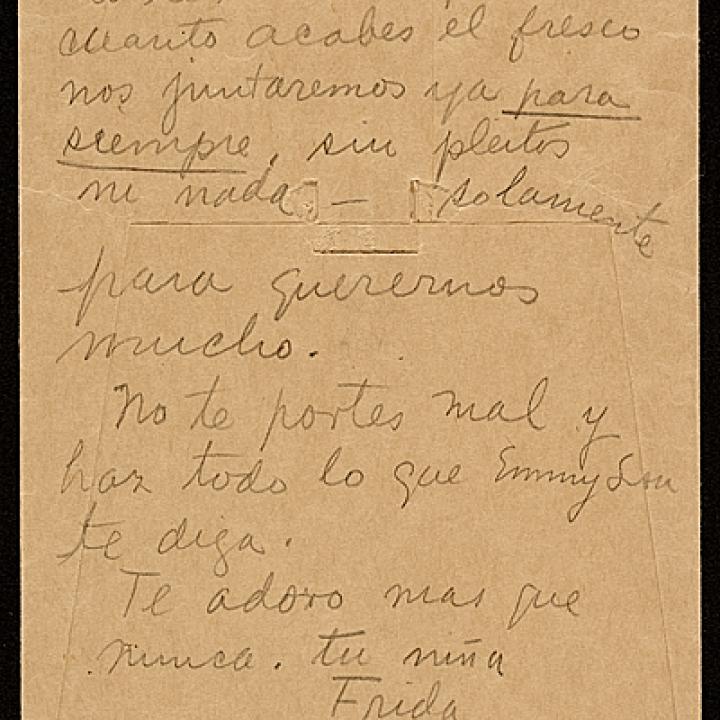 cuanto acabes el fresco
nos juntaremos ya para
siempre, sin pleitos
ni nada — solamente
para querernos
mucho.
No te portes mal y
haz todo lo que Emmy Lou
te diga.
Te adoro mas que
nunca. tu niña
Frida